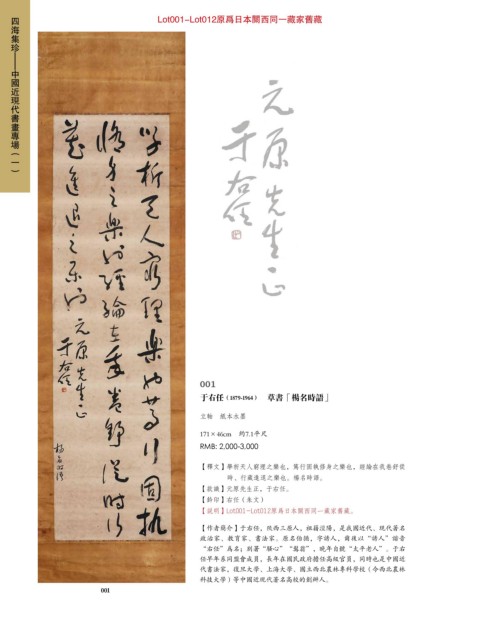 Lot001-Lot012原爲日本關西同一藏家舊藏
四海集珍——中國近現代書畫專場（一）
學析天人窮理樂也篤行固執
脩身之樂也經綸在我卷舒從時行
藏進退之樂也
元原先生正
于右任
楊名時語
元原先生正
于右任
001
于右任（1879-1964） 草書「楊名時語」
立軸 紙本水墨
171×46cm 約7.1平尺
RMB: 2,000-3,000
【釋文】學析天人窮理之樂也，篤行固執脩身之樂也，經綸在我卷舒從
時、行藏進退之樂也。楊名時語。
【款識】元原先生正，于右任。
【鈐印】右任（朱文）
【說明】Lot001-Lot012原爲日本關西同一藏家舊藏。
【作者簡介】于右任，陝西三原人，祖籍涇陽，是我國近代、現代著名
政治家、教育家、書法家。原名伯循，字誘人，爾後以“誘人”諧音
“右任”爲名；別署“騷心”“髯翁”，晚年自號“太平老人”。于右
任早年系同盟會成員，長年在國民政府擔任高級官員，同時也是中國近
代書法家，復旦大學、上海大學、國立西北農林專科學校（今西北農林
科技大學）等中國近現代著名高校的創辦人。
001